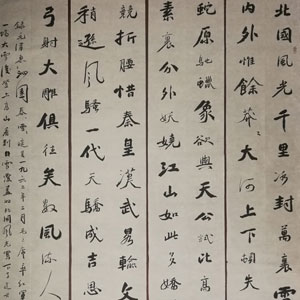 北國風光千里冰封萬里雪
內外惟餘莽〻大河上下頓失
蛇原馳蠟象欲與天公試比高
素裹分外妖嬈江山如此多嬌
競折腰惜秦皇漢武畧輸文
稍遜風騷一代天驕成吉思
弓射大雕俱往矣數風流人
沁園春雪